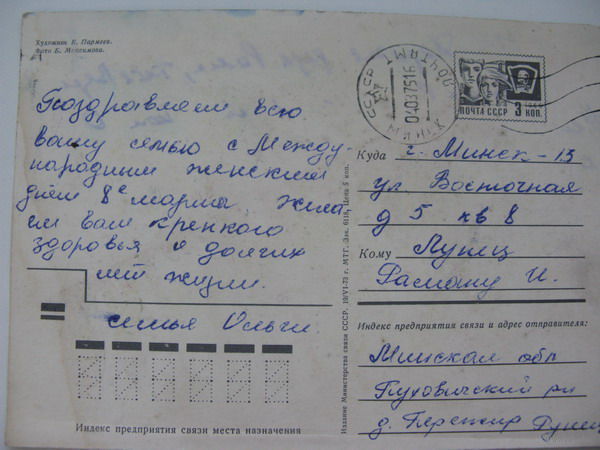 Художник Е. Пармеев.
Фото Б. Максимова.
Поздравляем всю
вашу семью с Между-
народным женским
днём 8е марта. Жела-
ем вам крепкого
здоровья и долгих
лет жизни.
семья Ольги.
Индекс предприятия связи места назначения
Издание Министерства связи СССР. 10/VI-73 г. МТГ. Зак. 618. Цена 5 коп.
СССР
ПОЧТАМТ
МИНСК
ПОЧТА СССР 3 КОП.
Куда г. Минск-13
ул. Восточная
д 5 кв 8
Кому Лупец
Роману И.
Индекс предприятия связи и адрес отправителя:
Минская обл
Пуховичский р-н
д.